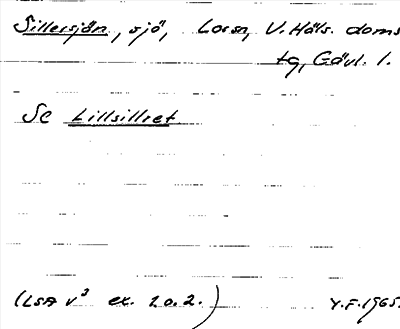 Sillersjön, sjö, Loos, V. Häls. doms
tg, Gävl. l.
Se Lillsillret
(LSA V³ ex. 2 o. 2.) Y.F. 1965.